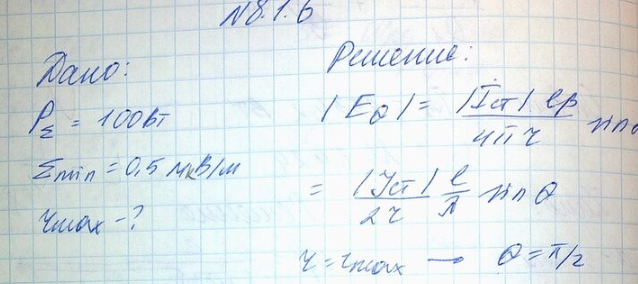 №8.1.6
Дано:
P_Σ = 100Вт
E_min = 0,5 мкВ/м
r_max - ?
Решение:
|E_θ| = |İст| ℓβ / 4πr sin θ
= |Iст| / 2r ℓ/λ sin θ
r = r_max → θ = π/2